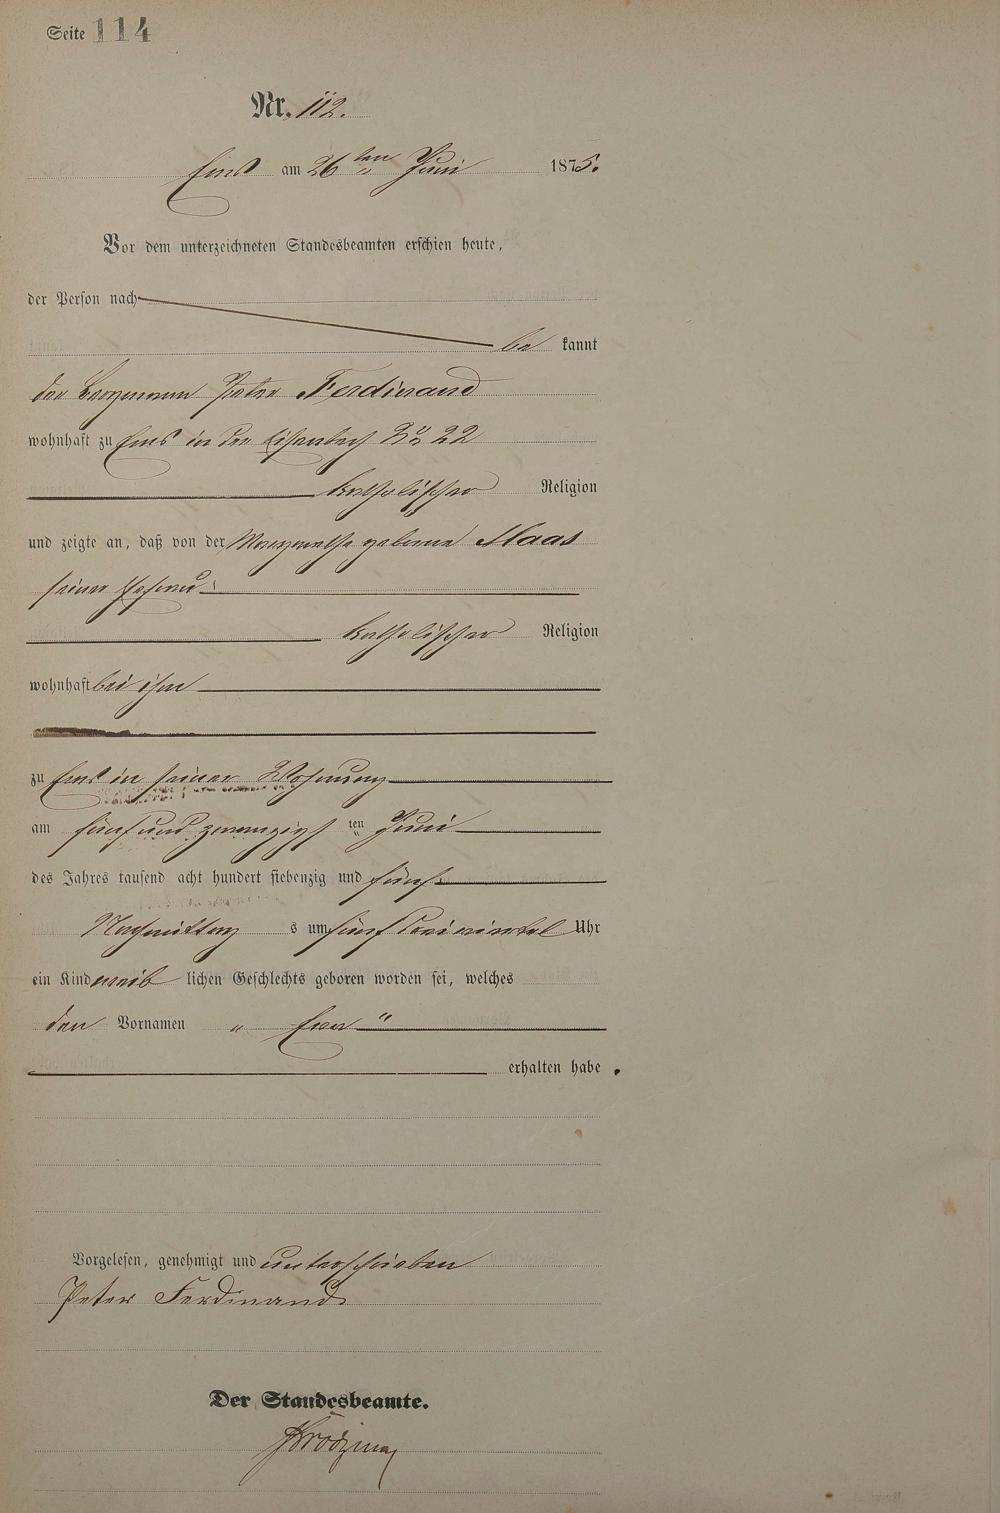 Seite 114
Nr. 112.
Ems am 26ten Juni 1875.
Vor dem unterzeichneten Standesbeamten erschien heute,
der Person nach
be kannt
der Bergmann Peter Ferdinand
wohnhaft zu Ems in der Eisenbach No 22
katholischer Religion
und zeigte an, daß von der Margarethe geborene Haas
seiner Ehefrau
katholischer Religion
wohnhaft bei ihm
zu Ems in seiner Wohnung
am fünfundzwanzigsten Juni
des Jahres tausend acht hundert siebenzig und fünf
Nachmittags um fünf dreiviertel Uhr
ein Kind weiblichen Geschlechts geboren worden sei, welches
den Vornamen „ Eva “
erhalten habe.
Vorgelesen, genehmigt und unterschrieben
Peter Ferdinand
Der Standesbeamte.